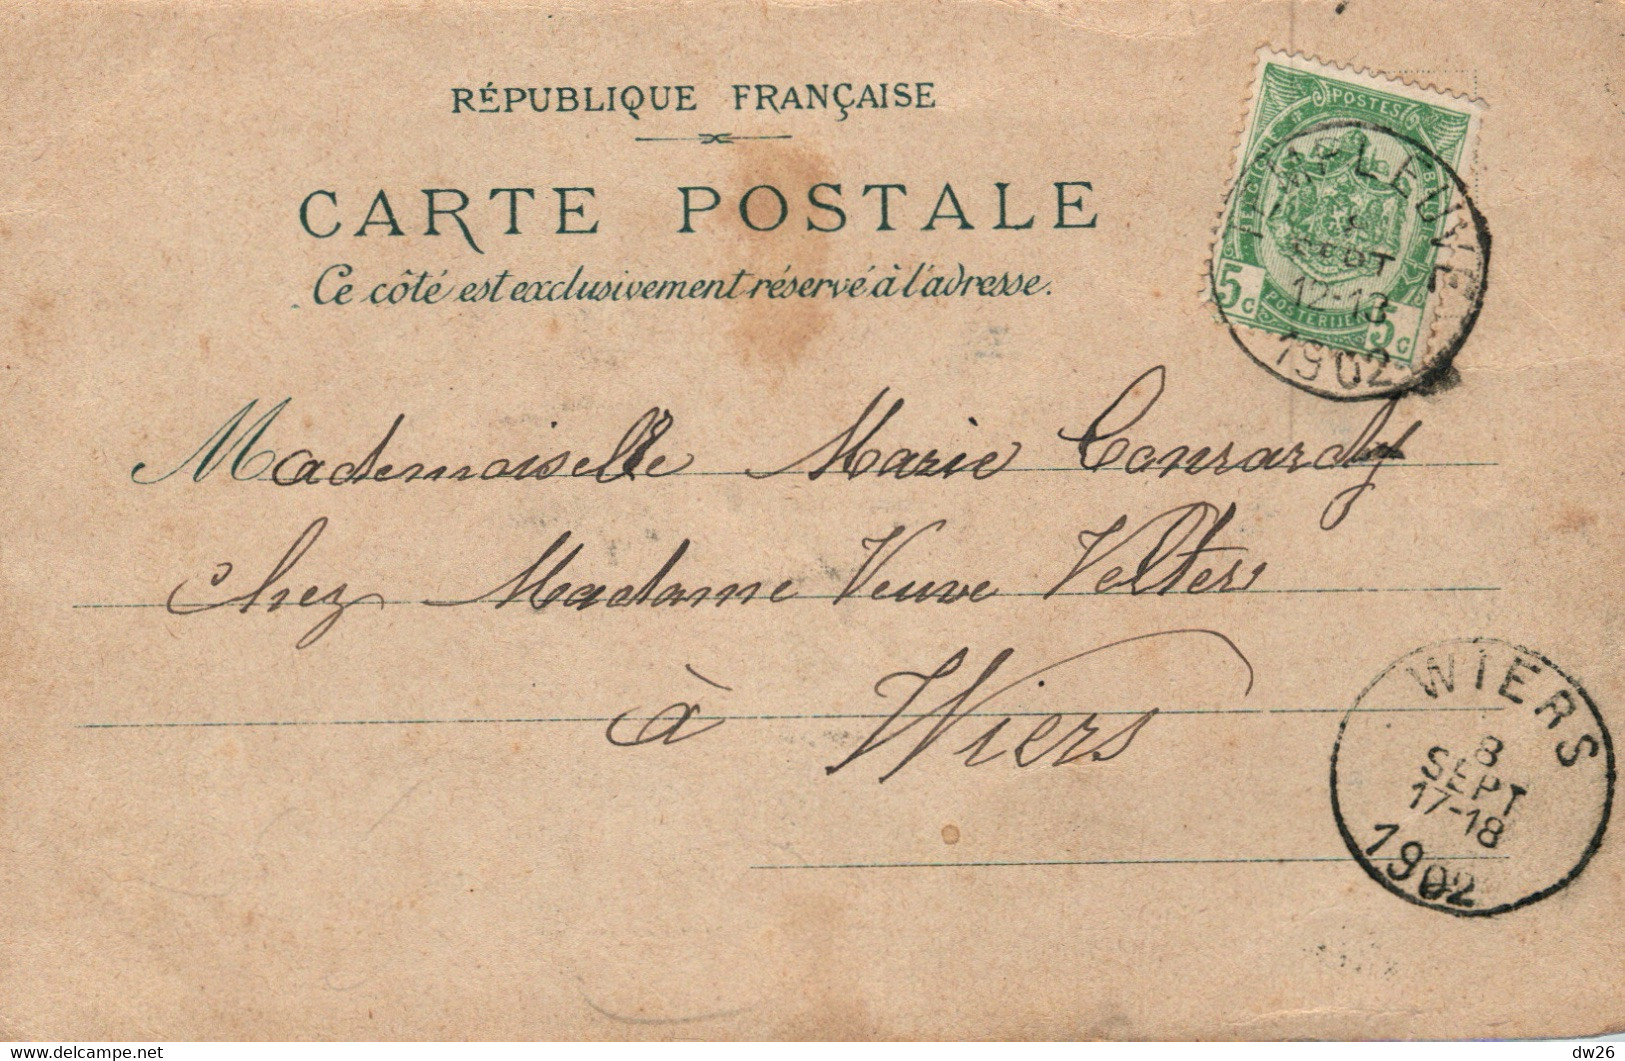 RÉPUBLIQUE FRANÇAISE
CARTE POSTALE
Ce côté est exclusivement réservé à l'adresse.
POSTES
5 c 5 c
POSTERIJEN
8
SEPT
12-13
1902
Mademoiselle Marie Conrardy
chez Madame Veuve Velters
à Wiers
WIERS
8
SEPT
17-18
1902
dw26